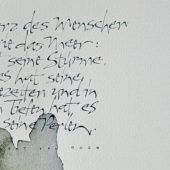 rz des Menschen
ie das Meer:
seine Stürme,
es hat seine
ezeiten und in
n Tiefen hat es
seine Perlen.